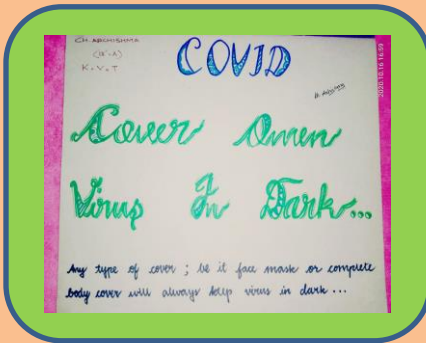 CH. ARCHISHMA
(IX-A)
K.V.T
COVID
2020.10.16 16:09
Cover Omen
Virus In Dark...
Any type of cover ; be it face mask or complete
body cover will always keep virus in dark ...